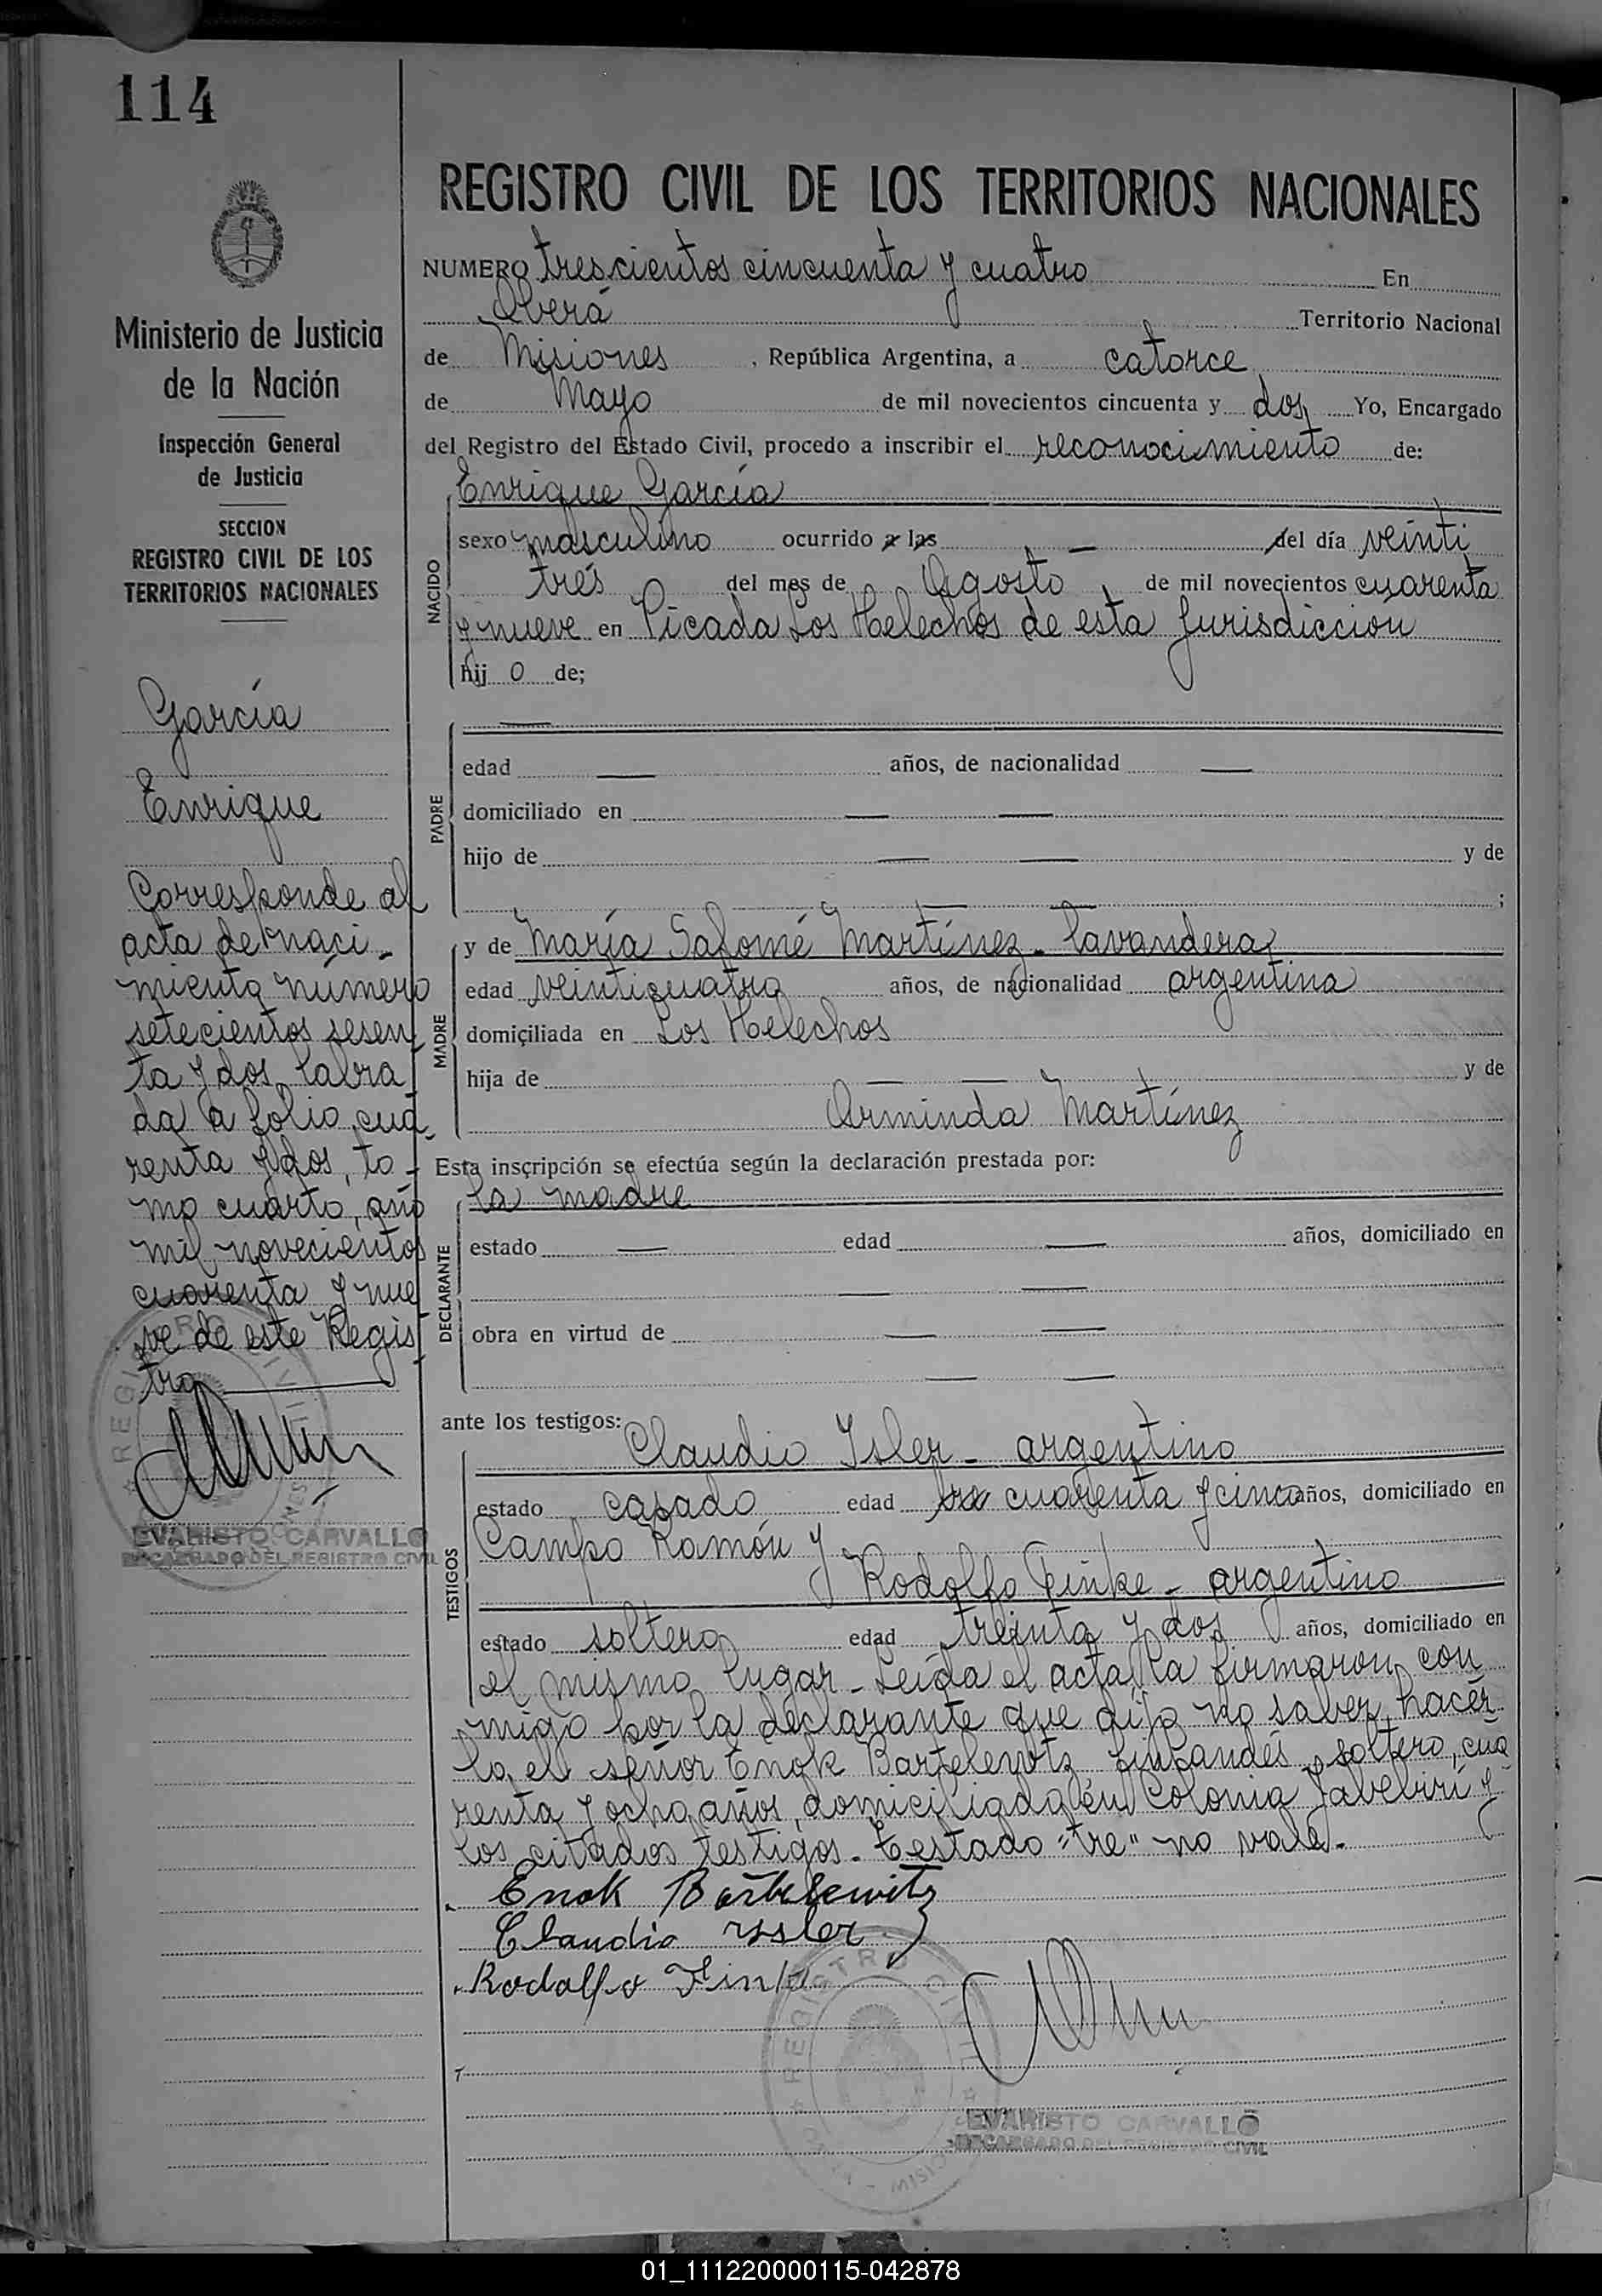 114
REGISTRO CIVIL DE LOS TERRITORIOS NACIONALES
Ministerio de Justicia
de la Nación
Inspección General
de Justicia
SECCION
REGISTRO CIVIL DE LOS
TERRITORIOS NACIONALES
García
Enrique
Corresponde al
acta de naci-
miento número
setecientos sesen-
ta y dos, labra
da a folio cua-
renta y dos, to-
mo cuarto, año
mil novecientos
cuarenta y nue
ve de este Regis-
tro
EVARISTO CARVALLO
ENCARGADO DEL REGISTRO CIVIL
NUMERO trescientos cincuenta y cuatro En
Oberá Territorio Nacional
de Misiones, República Argentina, a catorce
de Mayo de mil novecientos cincuenta y dos, Yo, Encargado
del Registro del Estado Civil, procedo a inscribir el reconocimiento de:
Enrique García
NACIDO
sexo masculino ocurrido a las — del día veinti
tres del mes de Agosto de mil novecientos cuarenta
y nueve en Picada Los Helechos de esta Jurisdicción
hij o de;
PADRE
—
edad — años, de nacionalidad —
domiciliado en — —
hijo de — — y de
— — ;
MADRE
y de María Salomé Martínez - lavandera,
edad veinticuatro años, de nacionalidad argentina
domiciliada en Los Helechos
hija de — — y de
Arminda Martínez
Esta inscripción se efectúa según la declaración prestada por:
DECLARANTE
la madre
estado — edad — años, domiciliado en
— —
obra en virtud de — —
— —
ante los testigos:
TESTIGOS
Claudio Isler - argentino
estado casado edad tre cuarenta y cinco años, domiciliado en
Campo Ramón y
Rodolfo Finke - argentino
estado soltero edad treinta y dos años, domiciliado en
el mismo lugar - Leída el acta, la firmaron con
migo por la declarante que dijo no saber hacer
lo, el señor Enok Bartelewitz, finlandés, soltero, cua
renta y ocho años, domiciliado en Colonia Yabebirí y
los citados testigos. Testado "tre" no vale.
Enok Bartelewitz
Claudio Issler
Rodolfo Finke
REGISTRO CIVIL
EVARISTO CARVALLO
ENCARGADO DEL REGISTRO CIVIL
01_111220000115-042878